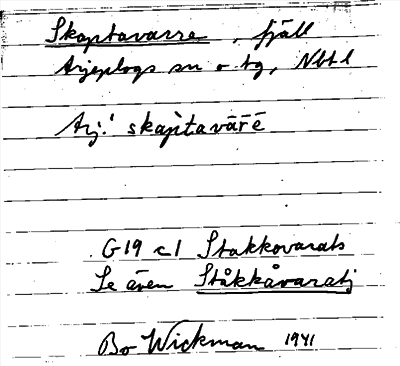 Skaptavarre, fjäll
Arjeplogs sn o tg, Nbtl
Arj.: skapi̇tavāŕē
G19 c1 Stakkovarats
Se även Ståkkåvaratj
Bo Wickman 1941